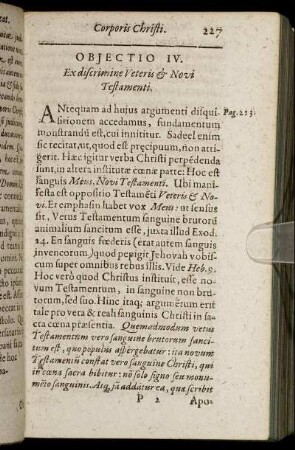 Corporis Christi. 227
OBJECTIO IV.
Ex discrimine Veteris & Novi
Testamenti.
ANtequam ad hujus argumenti disqui- Pag. 213.
sitionem accedamus, fundamentum
monstrandū est, cui innititur. Sadeel enim
sic recitat, ut, quod est præcipuum, non atti-
gerit. Hæc igitur verba Christi perpēdenda
sunt, in altera institutæ cœnæ parte: Hoc est
sanguis Meus. Novi Testamenti. Ubi mani-
festa est oppositio Testamēti Veteris & No-
vi. Et emphasin habet vox Meus: ut sensus
sit, Vetus Testamentum sanguine brutorū
animalium sancitum esse, juxta illud Exod.
24. En sanguis fœderis (erat autem sanguis
juvencorum) quod pepigit Jehovah vobis-
cum super omnibus rebus illis. Vide Heb. 9.
Hoc verò quod Christus instituit, esse no-
vum Testamentum, in sanguine non bru-
torum, sed suo. Hinc itaq; argumētum erit
tale pro vera & reali sanguinis Christi in sa-
cra cœna præsentia. Quemadmodum vetus
Testamentum vero sanguine brutorum sanci-
tum est, quo populus aspergebatur: ita novum
Testamentū constat vero sanguine Christi, qui
in cœna sacra bibitur: nō solo signo seu monu-
mēto sanguinis. Atq; jā addatur ea, quæ scribit
P 2 Apo-